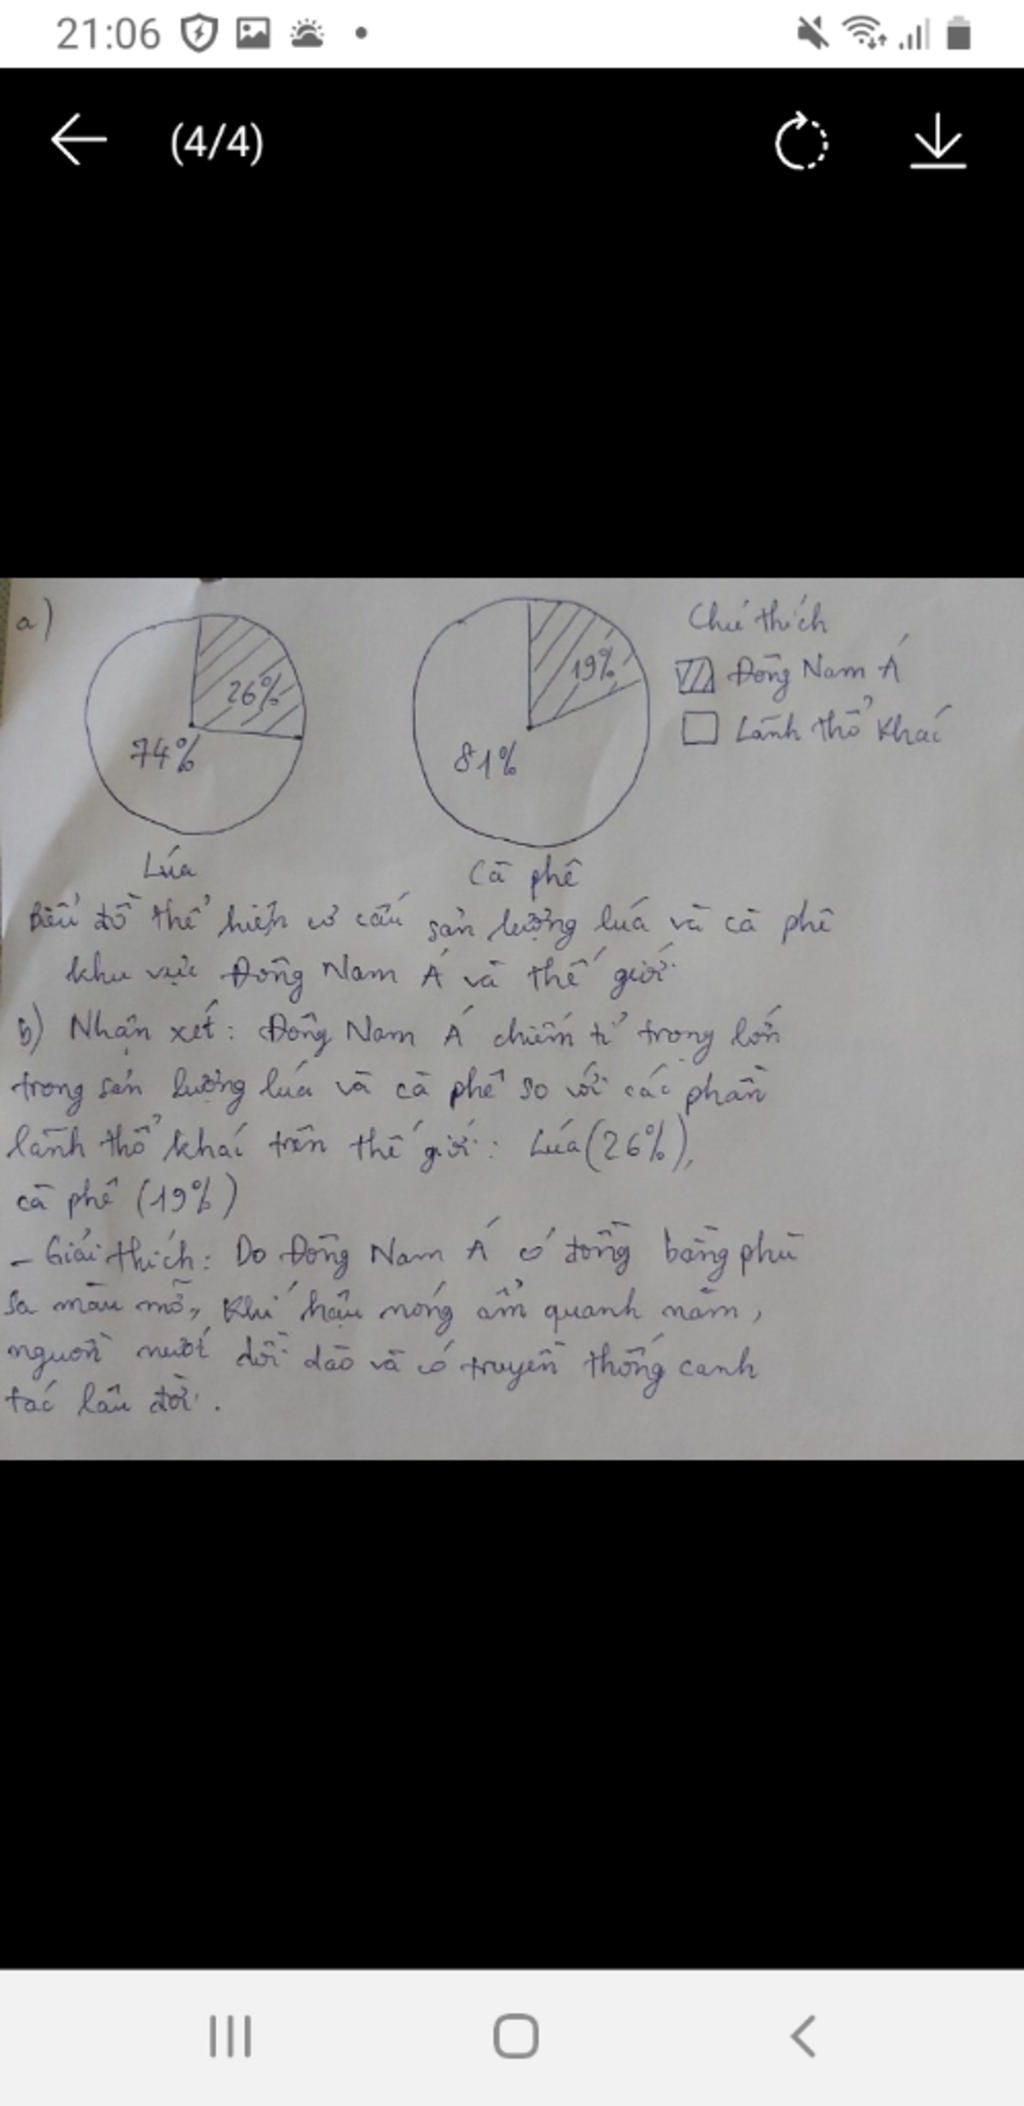 21:06
(4/4)
a)
26%
74%
Lúa
19%
81%
Cà phê
Chú thích
Đông Nam Á
Lãnh thổ khác
Biểu đồ thể hiện cơ cấu sản lượng lúa và cà phê
khu vực Đông Nam Á và thế giới
b) Nhận xét: Đông Nam Á chiếm tỉ trọng lớn
trong sản lượng lúa và cà phê so với các phần
lãnh thổ khác trên thế giới: Lúa (26%),
cà phê (19%)
- Giải thích: Do Đông Nam Á có đồng bằng phù
sa màu mỡ, khí hậu nóng ẩm quanh năm,
nguồn nước dồi dào và có truyền thống canh
tác lâu đời.